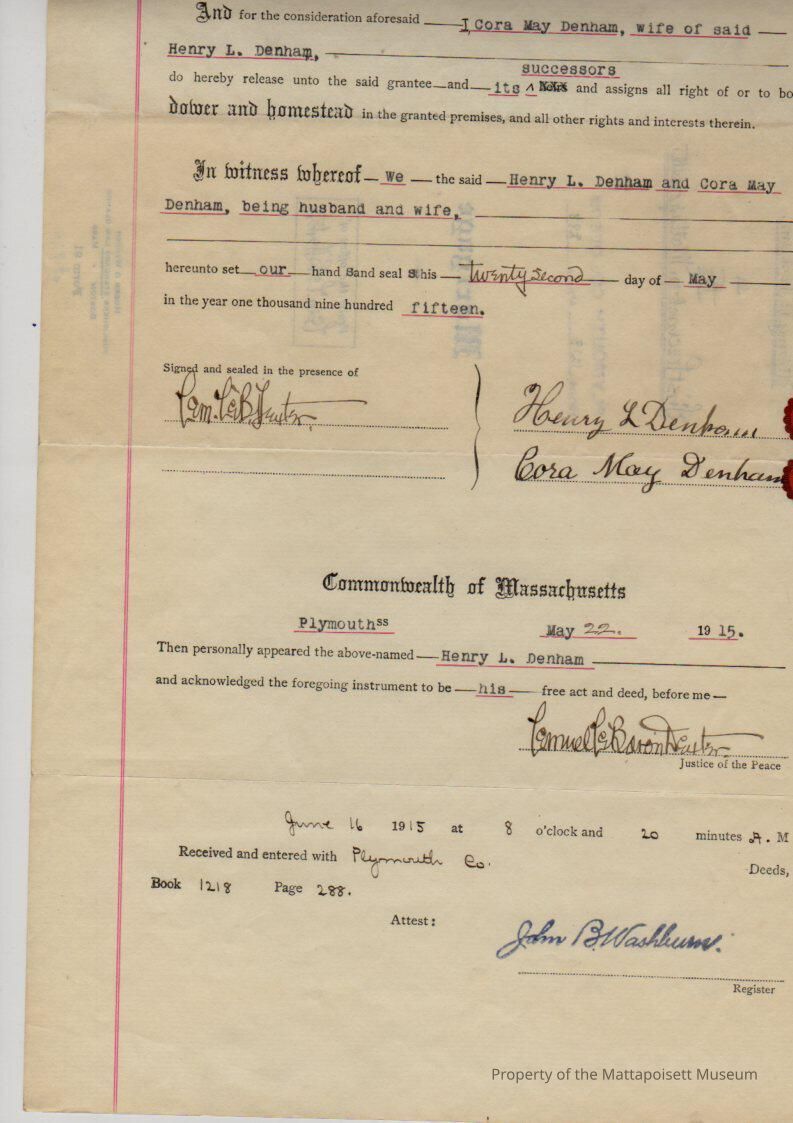 And for the consideration aforesaid I, Cora May Denham, wife of said
Henry L. Denham,
successors
do hereby release unto the said grantee and its ^ and assigns all right of or to bo
dower and homestead in the granted premises, and all other rights and interests therein.
In witness whereof we the said Henry L. Denham and Cora May
Denham, being husband and wife,
hereunto set our hand s and seal s this twenty second day of May
in the year one thousand nine hundred fifteen.
Signed and sealed in the presence of
Henry L Denham
Cora May Denham
Commonwealth of Massachusetts
Plymouth ss May 22. 1915.
Then personally appeared the above-named Henry L. Denham
and acknowledged the foregoing instrument to be his free act and deed, before me
Lemuel LeBaron Dexter
Justice of the Peace
June 16 1915 at 8 o'clock and 20 minutes A. M
Received and entered with Plymouth Co. Deeds,
Book 1218 Page 288.
Attest:
John B. Washburn.
Register
Property of the Mattapoisett Museum